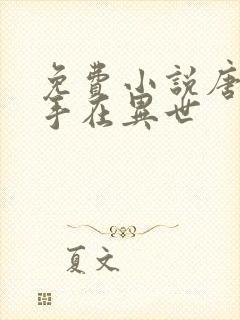 免費小說唐
手在異世
夏文